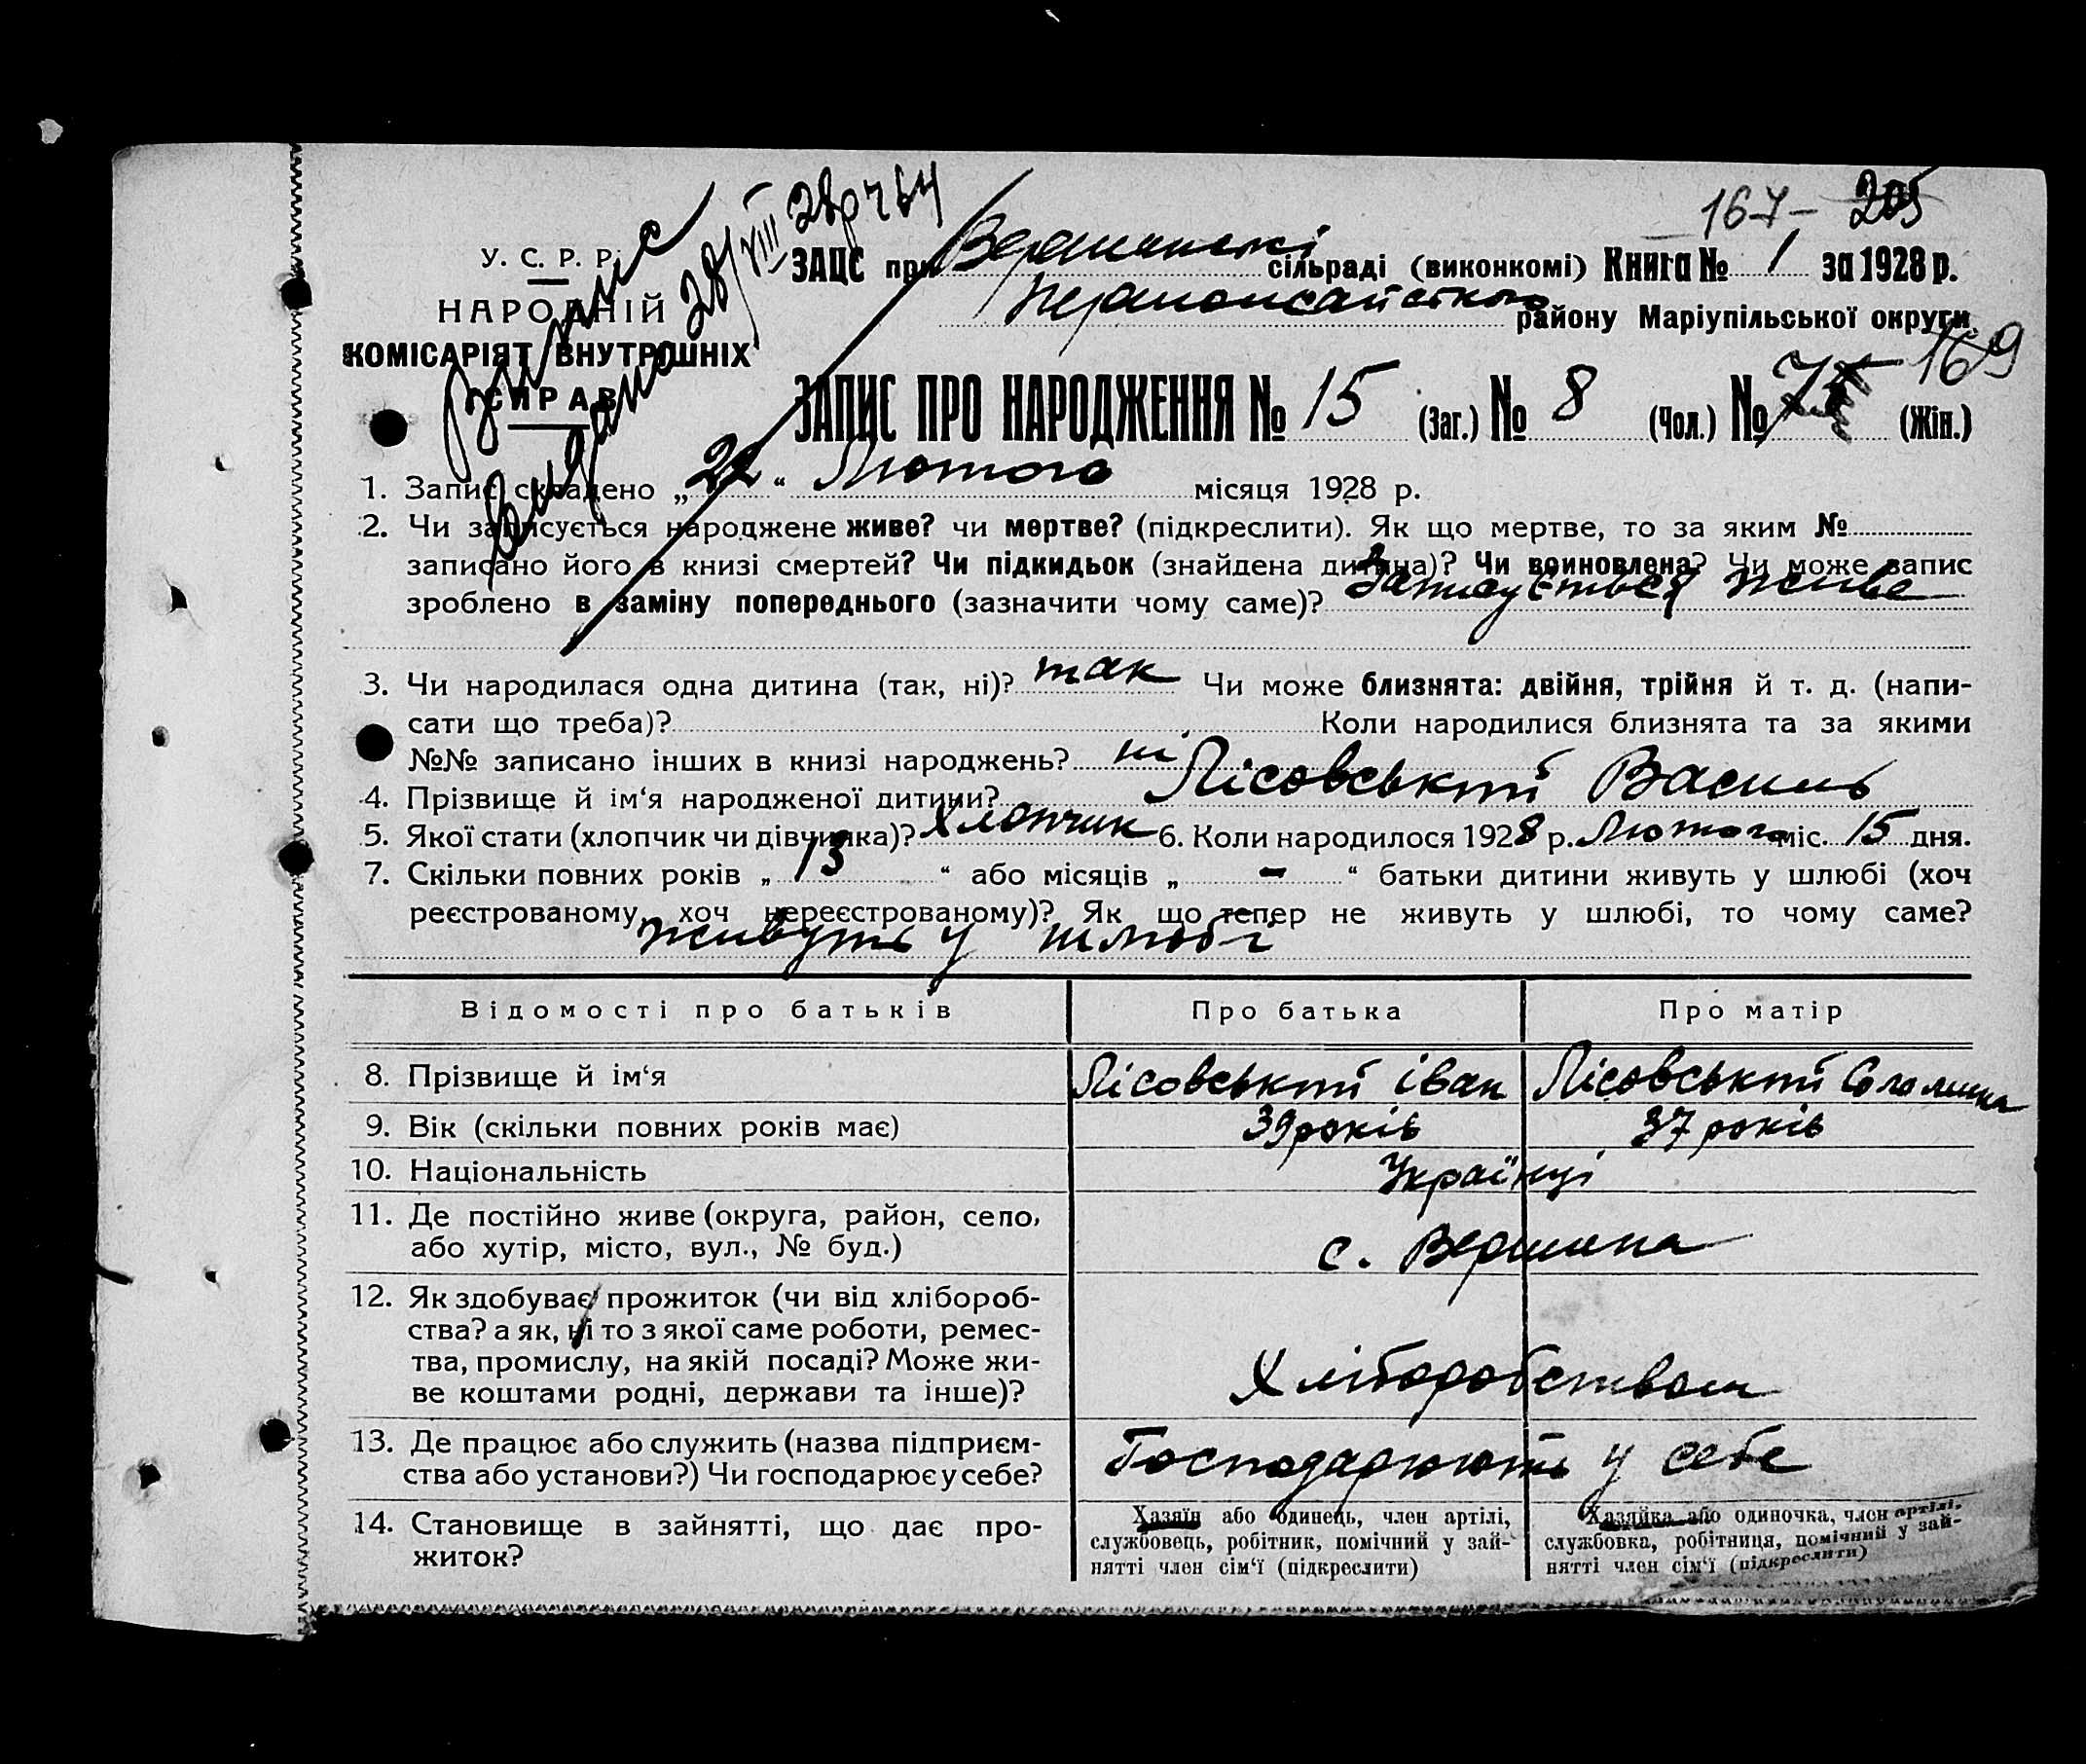 167 - 205
У. С. Р. Р.
НАРОДНІЙ
КОМІСАРІЯТ ВНУТРІШНІХ
СПРАВ
Випис
Видано 28/VIII 28р ч 64
ЗАЦС при Вершинські сільраді (виконкомі) Книга № 1 за 1928 р.
Першомайського району Маріупільської округи
169
ЗАПИС ПРО НАРОДЖЕННЯ № 15 (Заг.) № 8 (Чол.) № (Жін.)
1. Запис складено „ 22 “ Лютого місяця 1928 р.
2. Чи записується народжене живе? чи мертве? (підкреслити). Як що мертве, то за яким №
записано його в книзі смертей? Чи підкидьок (знайдена дитина)? Чи вейновлена? Чи може запис
зроблено в заміну попереднього (зазначити чому саме)? Записується живе
3. Чи народилася одна дитина (так, ні)? так Чи може близнята: двійня, трійня й т. д. (напи-
сати що треба)? Коли народилися близнята та за якими
№№ записано інших в книзі народжень? ні
4. Прізвище й ім‘я народженої дитини? Лісовський Василь
5. Якої стати (хлопчик чи дівчинка)? Хлопчик 6. Коли народилося 1928 р. Лютого міс. 15 дня.
7. Скільки повних років „ 13 “ або місяців „ - “ батьки дитини живуть у шлюбі (хоч
реєстрованому, хоч нереєстрованому)? Як що тепер не живуть у шлюбі, то чому саме?
живуть у шлюбі
Відомості про батьків Про батька Про матір
8. Прізвище й ім‘я Лісовський Іван Лісовський Соломина
9. Вік (скільки повних років має) 39 років 37 років
10. Національність Українці
11. Де постійно живе (округа, район, село,
або хутір, місто, вул., № буд.) с. Вершина
12. Як здобуває прожиток (чи від хлібороб-
ства? а як, ні то з якої саме роботи, ремес-
тва, промислу, на якій посаді? Може жи-
ве коштами родні, держави та інше)? Хліборобством
13. Де працює або служить (назва підприєм-
ства або установи?) Чи господарює у себе? Господарюють у себе
14. Становище в зайнятті, що дає про-
житок?
Хазяїн або одинець, член артілі,
службовець, робітник, помічний у зай-
нятті член сім‘ї (підкреслити)
Хазяйка або одиночка, член артілі,
службовка, робітниця, помічний у зай-
нятті член сім‘ї (підкреслити)